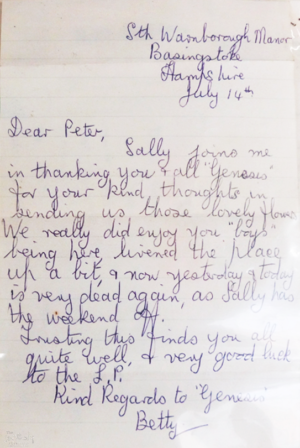 Sth Warnborough Manor
Basingstoke
Hampshire
July 14th
Dear Peter,
Sally joins me
in thanking you & all "Genesis"
for your kind thoughts in
sending us those lovely flowers
We really did enjoy you "boys"
being here, livened the place
up a bit, & now yesterday & today
is very dead again, as Sally has
the weekend off.
Trusting this finds you all
quite well, & very good luck
to the L.P.
Kind Regards to "Genesis"
Betty